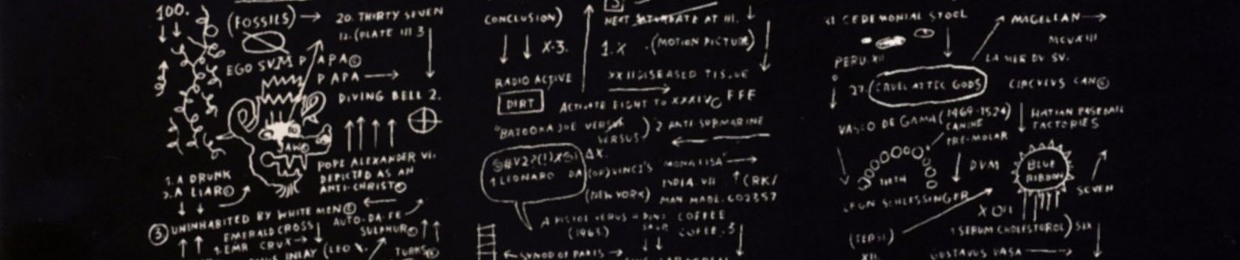 100.
(FOSSILS) →
20. THIRTY SEVEN
12. (PLATE III 3
EGO SVM PAPA©
PAPA →
DIVING BELL 2.
POPE ALEXANDER VI.
DEPICTED AS AN
ANTI-CHRIST©
1. A DRUNK
2. A LIAR©
③ UNINHABITED BY WHITE MEN©
AUTO-DA-FE
EMERALD CROSS
SULPHUR©
1. EMR CRUX →
INLAY (LEO
TURKS©
CONCLUSION)
NEXT
DATE AT III.
X-3.
1.X
(MOTION PICTURE)
RADIO ACTIVE
XXII DISEASED TISSUE
DIRT
ACTIVATE EIGHT TO XXXIV© FFF
"BAZOOKA JOE VERSUS) 2 ANTI SUBMARINE
VERSUS)
1 LEONARDO DA
(OF)VINCI'S
MONA LISA →
(NEW YORK)
INDIA. VII
(RK/
MAN MADE.
A PISTOL VERUS =
COFFEE
(1963)
COFFEE.
← SYNOD OF PARIS →
CEREMONIAL STOOL
MAGELLAN →
MCVXIII
PERU. XII
LA MER DU SV.
27. (CRUEL AZTEC GODS)
CIRCVEVS CAN©
VASCO DE GAMA (1469-1524)
CANINE
PRE-MOLAR
HATIAN BASEBALL
FACTORIES
DVM
TEETH
BLUE
RIBBON
SEVEN
LEON SCHLESSINGER
XOII
1 SERUM CHOLESTOROL) SIX
XII.
GUSTAVUS VASA →